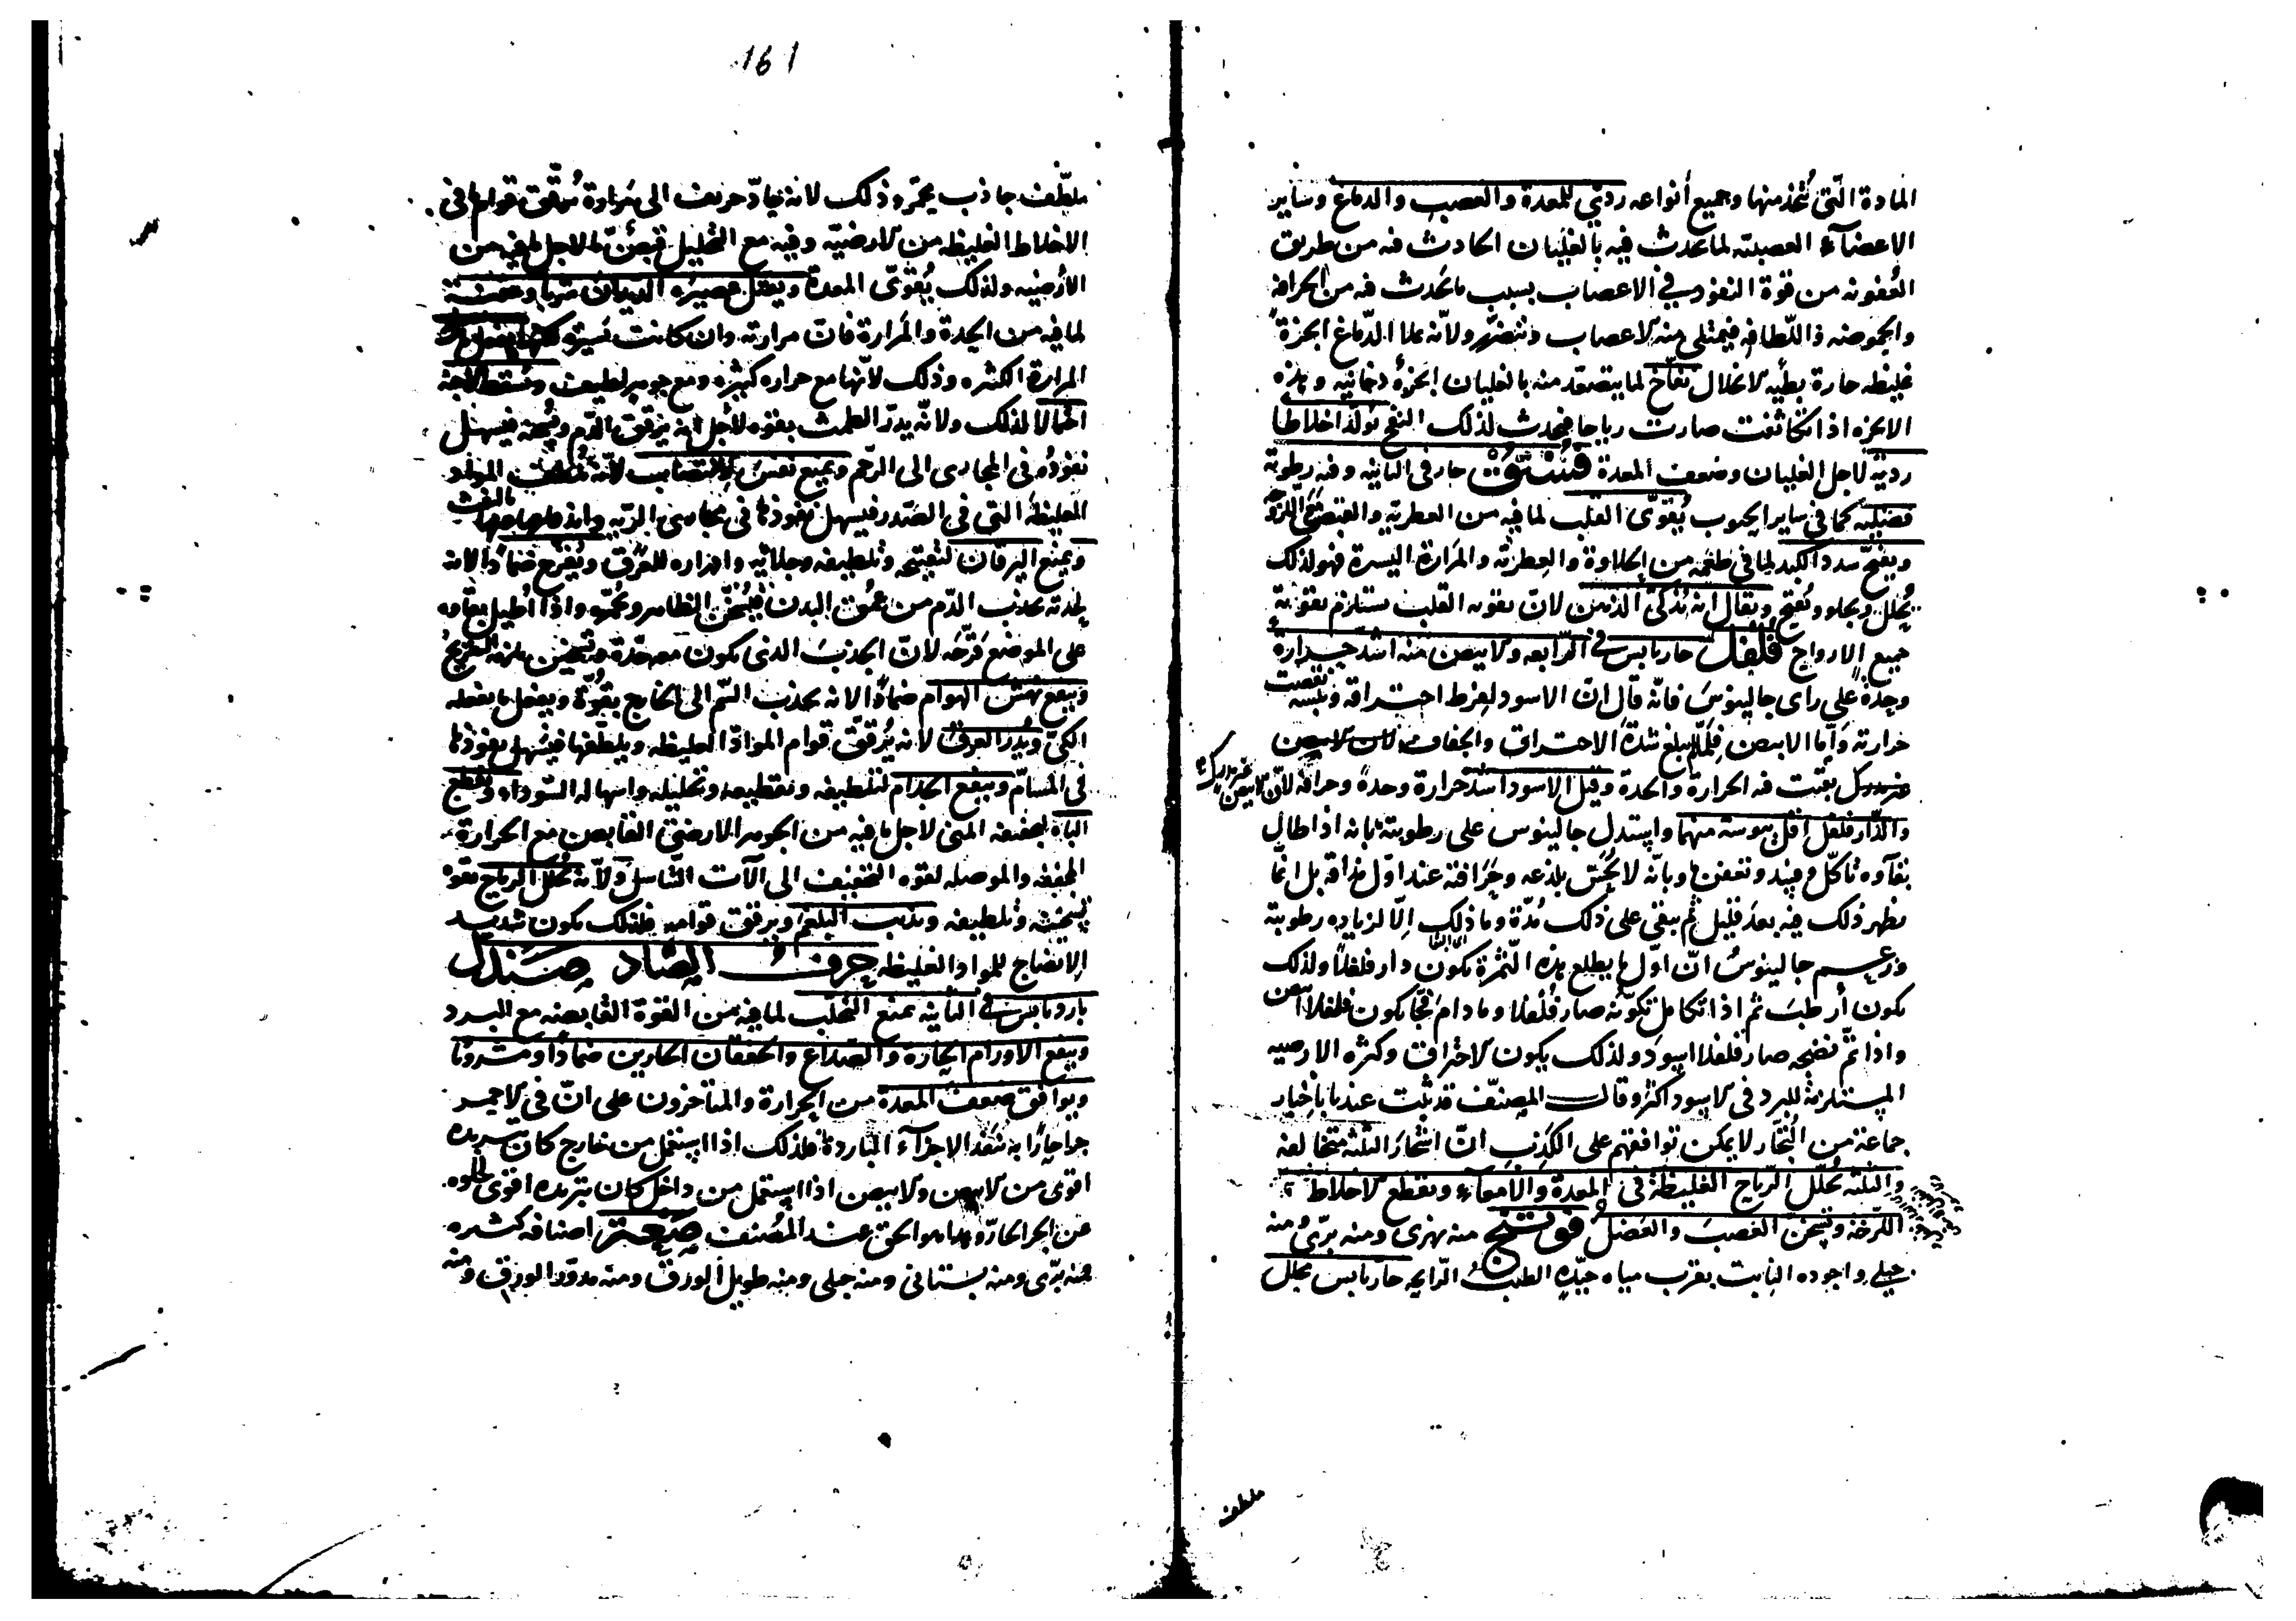 المادة الّتى تُتّخذ منها وجميع أنواعه ردئ للمعدة والعصب والدماغ وساير
الاعضآء العصبيّه لما يحدث فيه بالغليان الحادث فيه من طريق
العُفونه من قوة النفوذ فى الاعصاب بسبب ما يحدث فيه من الحرافة
والحموضه واللّطافه فيمتلى منه الاعصاب وتتضرّر ولانّه يملا الدّماغ ابخرةً
غليظه حارة بطيّه الانحلال نفّاخ لما يتصعّد منه بالغليان ابخرةٌ دخانيه وهذه
الابخره اذا تكاثفت صارت رياحا فيحدث لذلك النفخ يولّد اخلاطا
رديّه لاجل الغليان وضعف المعدة فُسْتُق حار فى الثانيه وفيه رطوبة
فضليّه كما فى ساير الحبوب يُقوّى القلب لما فيه من العطريّه والقبض
ويفتح سدد الكبد لما فى طعمه من الحلاوة والعِطريّه والمَرارة اليسيرة فهو لذلك
يُحلّل ويجلو ويُفتح ويقال انه يُذكّى الذهن لانّ تقويه القلب يستلزم تقوية
جميع الارواح فُلْفُل حار يابس فى الرّابعه والابيض منه اشدّ حرارة
وحِدّة على راى جالينوسَ فانّه قال انّ الاسود لِفرط احتراقه ويُبسه نقصت
حرارته وأمّا الابيض فلمّا لم يبلغ شدّةَ الاحتراق والجفاف
بقيت فيه الحرارة والحدة وقيل الاسود اشدّ حرارة وحدةً وحرافه لانّ الابيض
والدّار فلفل اقل يبوسة منهما واستدل جالينوس على رطوبته بانه اذا طال
بقآوه تأكّل وبانّه لا يُحَسّ بلذعه وحَرافته عند اوّل مذاقه بل انّما
يظهر ذلك فيه بعد قليل ثم يبقى على ذلك مُدّة وما ذلك اِلّا لزياده رطوبته
وزعم جالينوسُ انّ اوّل ما يطلع هذه الثّمرة يكون دار فلفلاً ولذلك
يكون أرطبَ ثم اذا تكامل تكوّنه صار فُلفُلا وما دام فجّا يكون فلفلا ابيض
واذا تمّ نضجه صار فلفلا اسودَ ولذلك يكون الاحتراق وكثره الارضيه
المستلزمةُ للبرد فى الاسود اكثر وقال المصنّف قد ثبت عندنا باخبار
جماعة من التُجّار لا يمكن توافقهم على الكَذِبِ انّ اشجارَ الثلثة متخالفه
والثلثه يُحلّل الرّياح الغليظة فى المعدة والامعاء ويقطع الاخلاط
اللّزجة ويُسخّن العَصبَ والعَضلَ فُوتنج منه نهرى ومنه برّى ومنه
جبلى واجوده النابت بقرب مياه جيّده الطيّب الرّايحه حار يابس محلل
ملطف
161
ملطّف جاذب محمّر وذلك لانه حادّ حريف الى مَرارة يُرقّق قوام ما فى
الاخلاط الغليظه من الارضيّه وفيه مع التحليل قبضٌ ما لاجل ما فيه من
الأرضيه ولذلك يُقوّى المعدة ويقتل عصيرُه الديدان شربا وحقنة
لما فيه من الحِدة والمَرارة فانّ مرارته وان كانت يسيرة
المرارة الكثيره وذلك لانّها مع حراره كثيرة ومع جوهر لطيف ويُسقط الاجنّة
احتمالا لذلك ولانّه يدرّ الطمث بقوه لأجل انه يرقّق الدّم ويُسخنه فيسهل
نفوذُه فى المجارى الى الرّحم ويمنع نفسَ الانتصاب لانّه يُلطّف الموادّ
الغليظة التى فى الصّدر فيسهل نفوذها فى مجارى الرّيه بالنفث
ويمنع اليرقان لتفتيحه وتلطيفه وجلائه وادراره للعَرَق ويُقرّح ضمادًا لانه
لحدته يجذب الدّم من عُمق البدن فيُسخّن الظاهر ويُحمّره واذا أُطيل بقآوه
على الموضع قَرّحَه لانّ الجذبَ الذى يكون مع حدّة وتسخين يلزمه التقريحُ
وينفع نهش الهوام ضمادًا لانه يجذب السّم الى الخارج بقُوّة ويفعل ما يفعله
الكىّ ويُدرّ العرق لانه يُرقّق قوام الموادّ الغليظه ويلطّفها فيسهل نفوذها
فى المسامّ وينفع الجذام لتلطيفه وتقطيعه وتحليله واسهاله السّوداء ويَقطع
الباه لتجفيفه المنى لاجل ما فيه من الجوهر الارضىّ القابض مع الحرارة
المجفّفه والموصله لقوه التجفيف الى آلات التّناسل ولانّه يُحلّل الرياح بقوة
تسخينه وتلطيفه ويذيب البلغم ويرقّق قوامه فلذلك يكون شديد
الانضاج للمواد الغليظه حرف الصّاد صَنْدل
بارد يابس فى الثانيه يمنع التحلّب لما فيه من القوة القابضه مع البرد
وينفع الاورام الحارّة والصّداع والخفقان الحارين ضمادًا ومشروبًا
ويوافق ضعفَ المعدة من الحرارة والمتاخرون على انّ فى الاحمر
جزا حارًّا به تنفذ الاجزآء الباردة فلذلك اذا استعمل من خارج كان تبريده
اقوى من الابيض والابيض اذا استعمل من داخل كان تبريده اقوى لخلوه
عن الجزء الحارّ وهذا هو الحق عند المُصنف صَعْتر اصنافه كثيره
منه برّى ومنه بستانى ومنه جبلى ومنه طويل الورق ومنه مدوّر الورق ومنه